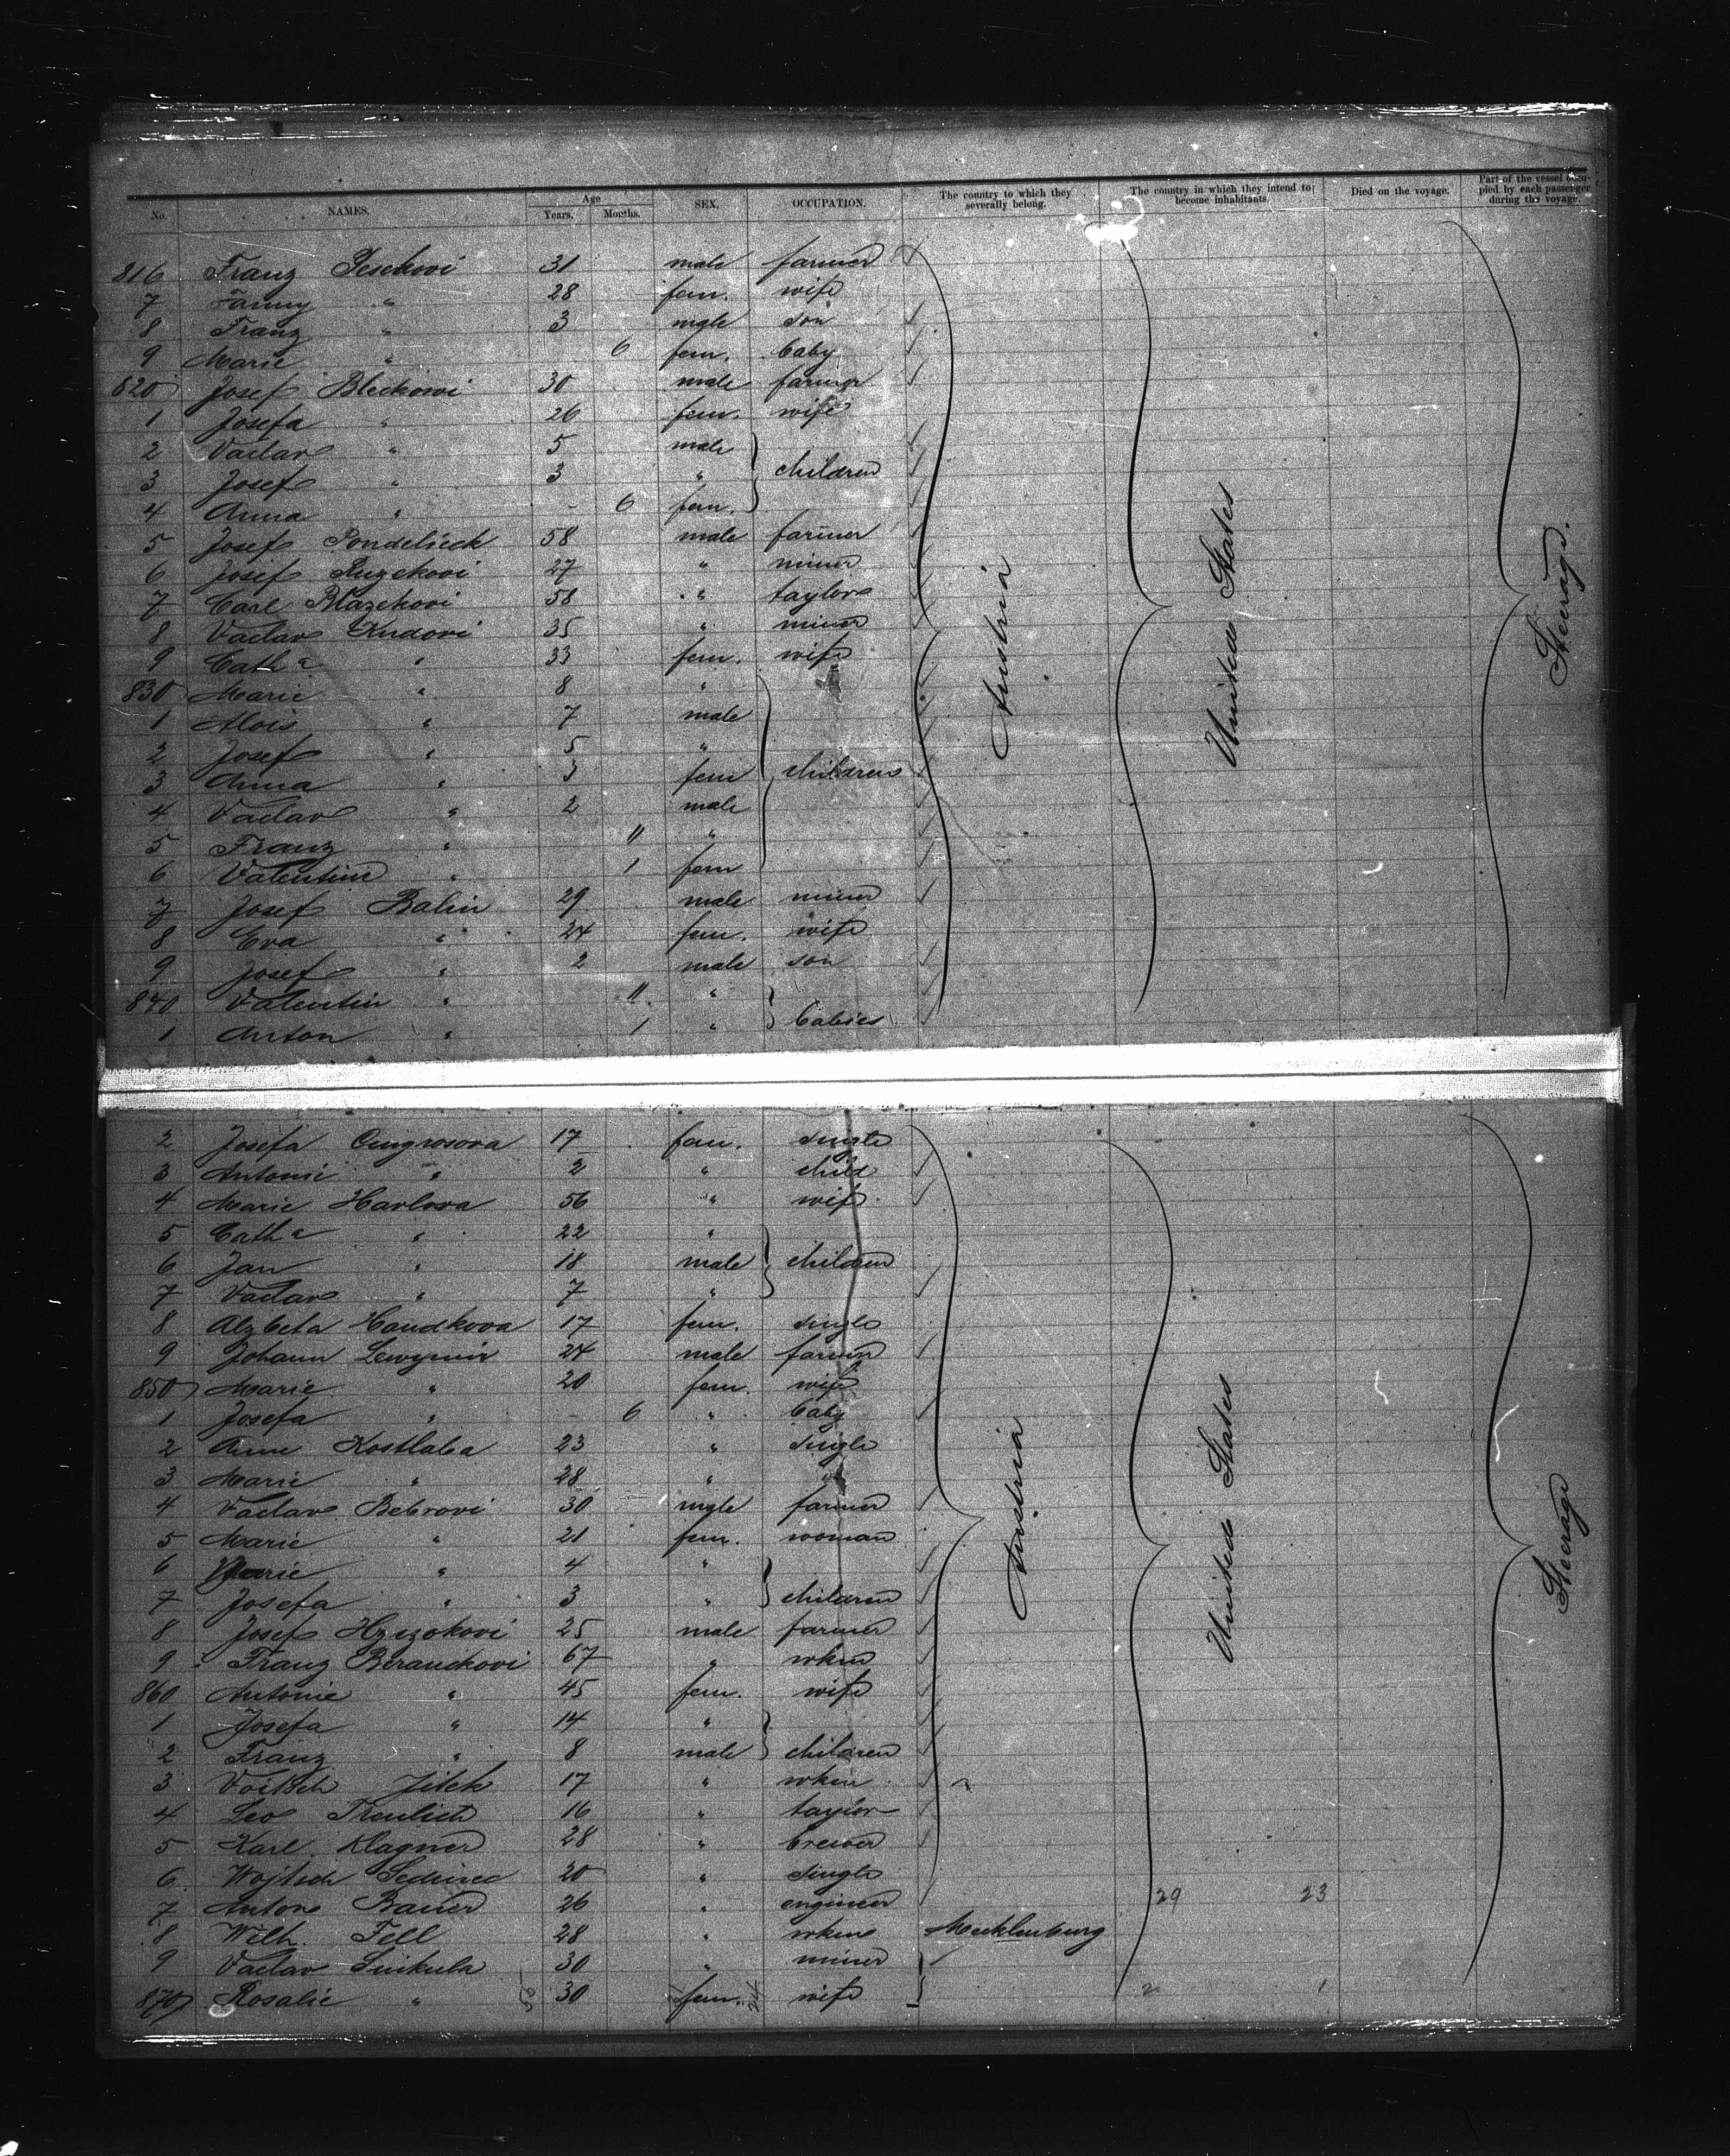 No. NAMES. Age Years. Months. SEX. OCCUPATION. The country to which they severally belong. The country in which they intend to become inhabitants. Died on the voyage. Part of the vessel occupied by each passenger during the voyage.
816 Franz Peschovi 31 male farmer
7 Fanny " 28 fem. wife
8 Franz " 3 male son
9 Marie " 6 fem. baby
820 Josef Bleckowi 30 male farmer
1 Josefa " 26 fem. wife
2 Vaclav " 5 male
3 Josef " 3 " children
4 Anna " - 6 fem.
5 Josef Pondelicek 58 male farmer
6 Josef Ruzekovi 27 " miner
7 Carl Blazekovi 58 " taylor
8 Vaclav Kudovi 35 " miner
9 Cath a " 33 fem. wife
830 Marie " 8 "
1 Alois " 7 male
2 Josef " 5 "
3 Anna " 3 fem children
4 Vaclav " 2 male
5 Franz " 11 "
6 Valentine " 1 fem
7 Josef Balin 29 male miner
8 Eva " 24 fem. wife
9 Josef " 2 male son
840 Valentin " 11. "
1 Anton " 1 " babies
Austria
United States
Steerage.
2 Josefa Cungrosova 17 fem. single
3 Antoni " 2 " child
4 Marie Havlova 56 " wife
5 Cath a " 22 "
6 Jan " 18 male children
7 Vaclav " 7 "
8 Alzbeta Houdkova 17 fem. single
9 Johann 24 male farmer
850 Marie " 20 fem. wife
1 Josefa " - 6 " baby
2 Anne Kostlaba 23 " single
3 Marie " 28 " "
4 Vaclav Bebrovi 30 male farmer
5 Marie " 21 fem. woman
6 Marie " 4 "
7 Josefa " 3 " children
8 Josef 25 male farmer
9 Franz Beranekovi 67 " wkm
860 Antonie " 45 fem. wife
1 Josefa " 14 "
2 Franz " 8 male children
3 Voitsch Jilek 17 " wkm
4 Leo Freulich 16 " taylor
5 Karl Klagner 28 " brewer
6 Wojtsch Sedivec 20 " single
7 Anton Bauer 26 " engineer 29 23
8 Wilh. Fell 28 " wkm Mecklenburg
9 Vaclav 30 " miner
870 Rosalie " 30 fem. wife 2 1
Austria
United States
Steerage